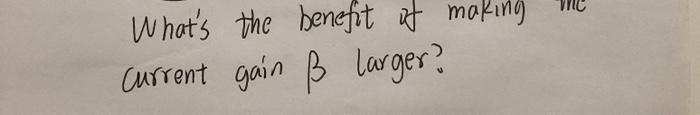 What's the benefit of making the
current gain β larger?